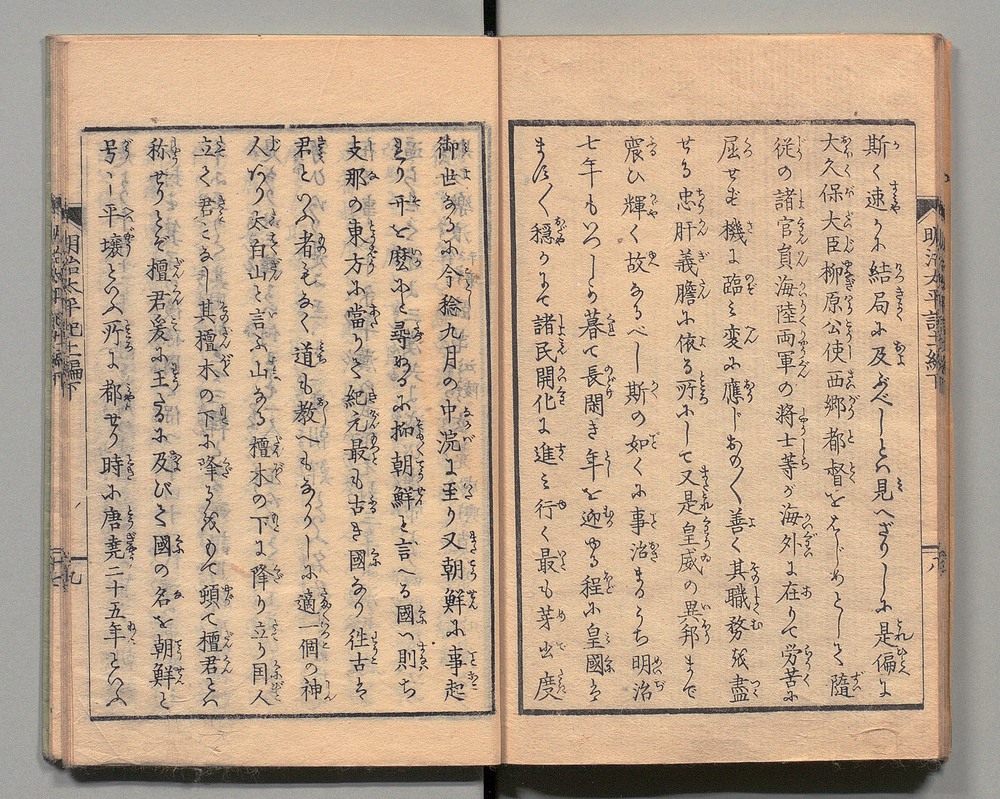 斯く速かに結局に及ぶべしとハ見へざりしに是偏に
大久保大臣柳原公使西郷都督をはじめとして隨
従の諸官員海陸両軍の将士等が海外に在りて労苦に
屈せず機に臨ミ変に應じおの〳〵善く其職務を盡
せる忠肝義膽に依る所にして又是皇威の異邦まで
震ひ輝く故なるべし斯の如くに事治まるうち明治
七年もいつしか暮て長閑き年を迎ゆる程に皇國は
ます〳〵穏かにて諸民開化に進ミ行く最も芽出度
御世なるに今稔九月の中浣に至り又朝鮮に事起
れり
と尋ぬるに抑朝鮮と言へる國ハ則ち
支那の東方に當りて紀元最も古き國なり徃古は
君といふ者もなく道も教へもなかりしに適一個の神
人あり太白山と言ふ山なる檀木の下に降り立り国人
立て君となし其檀木の下に降るを以て頓て檀君とハ
称せりとぞ檀君爰に王たるに及びて國の名を朝鮮と
号し平壌といふ所に都せり時に唐堯二十五年といふ
明治太平記十一編下
八
明治太平記十一編下
九